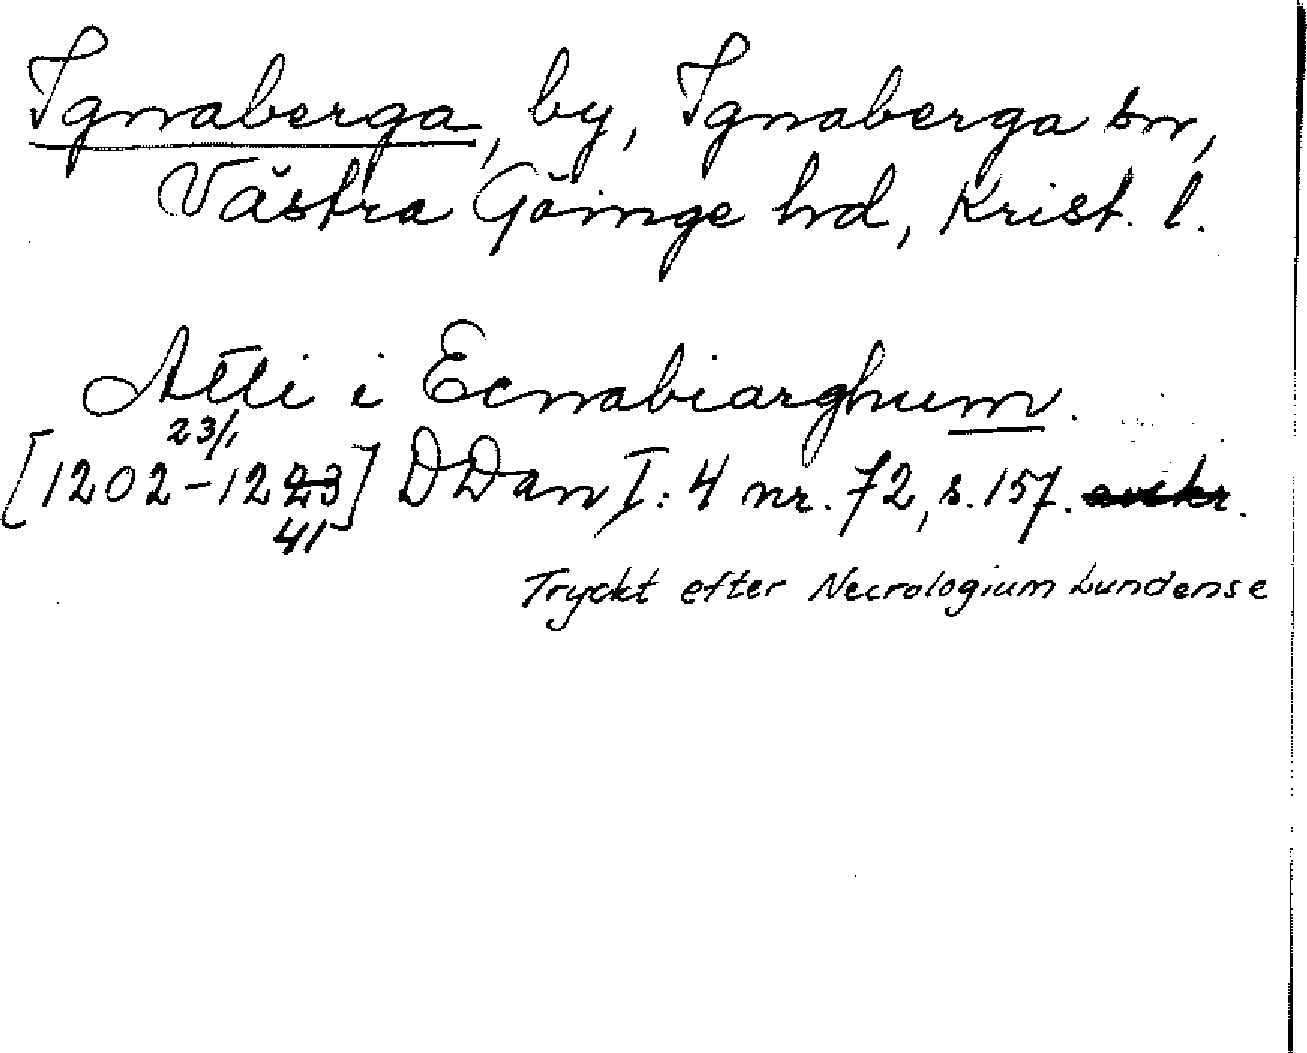 Ignaberga, by, Ignaberga sn,
Västra Göinge hd, Krist. l.
Atli i Ecnabiarghum.
23/1
[1202-1223] DDan I:4 nr. 72, s. 157. avskr.
41
Tryckt efter Necrologium Lundense